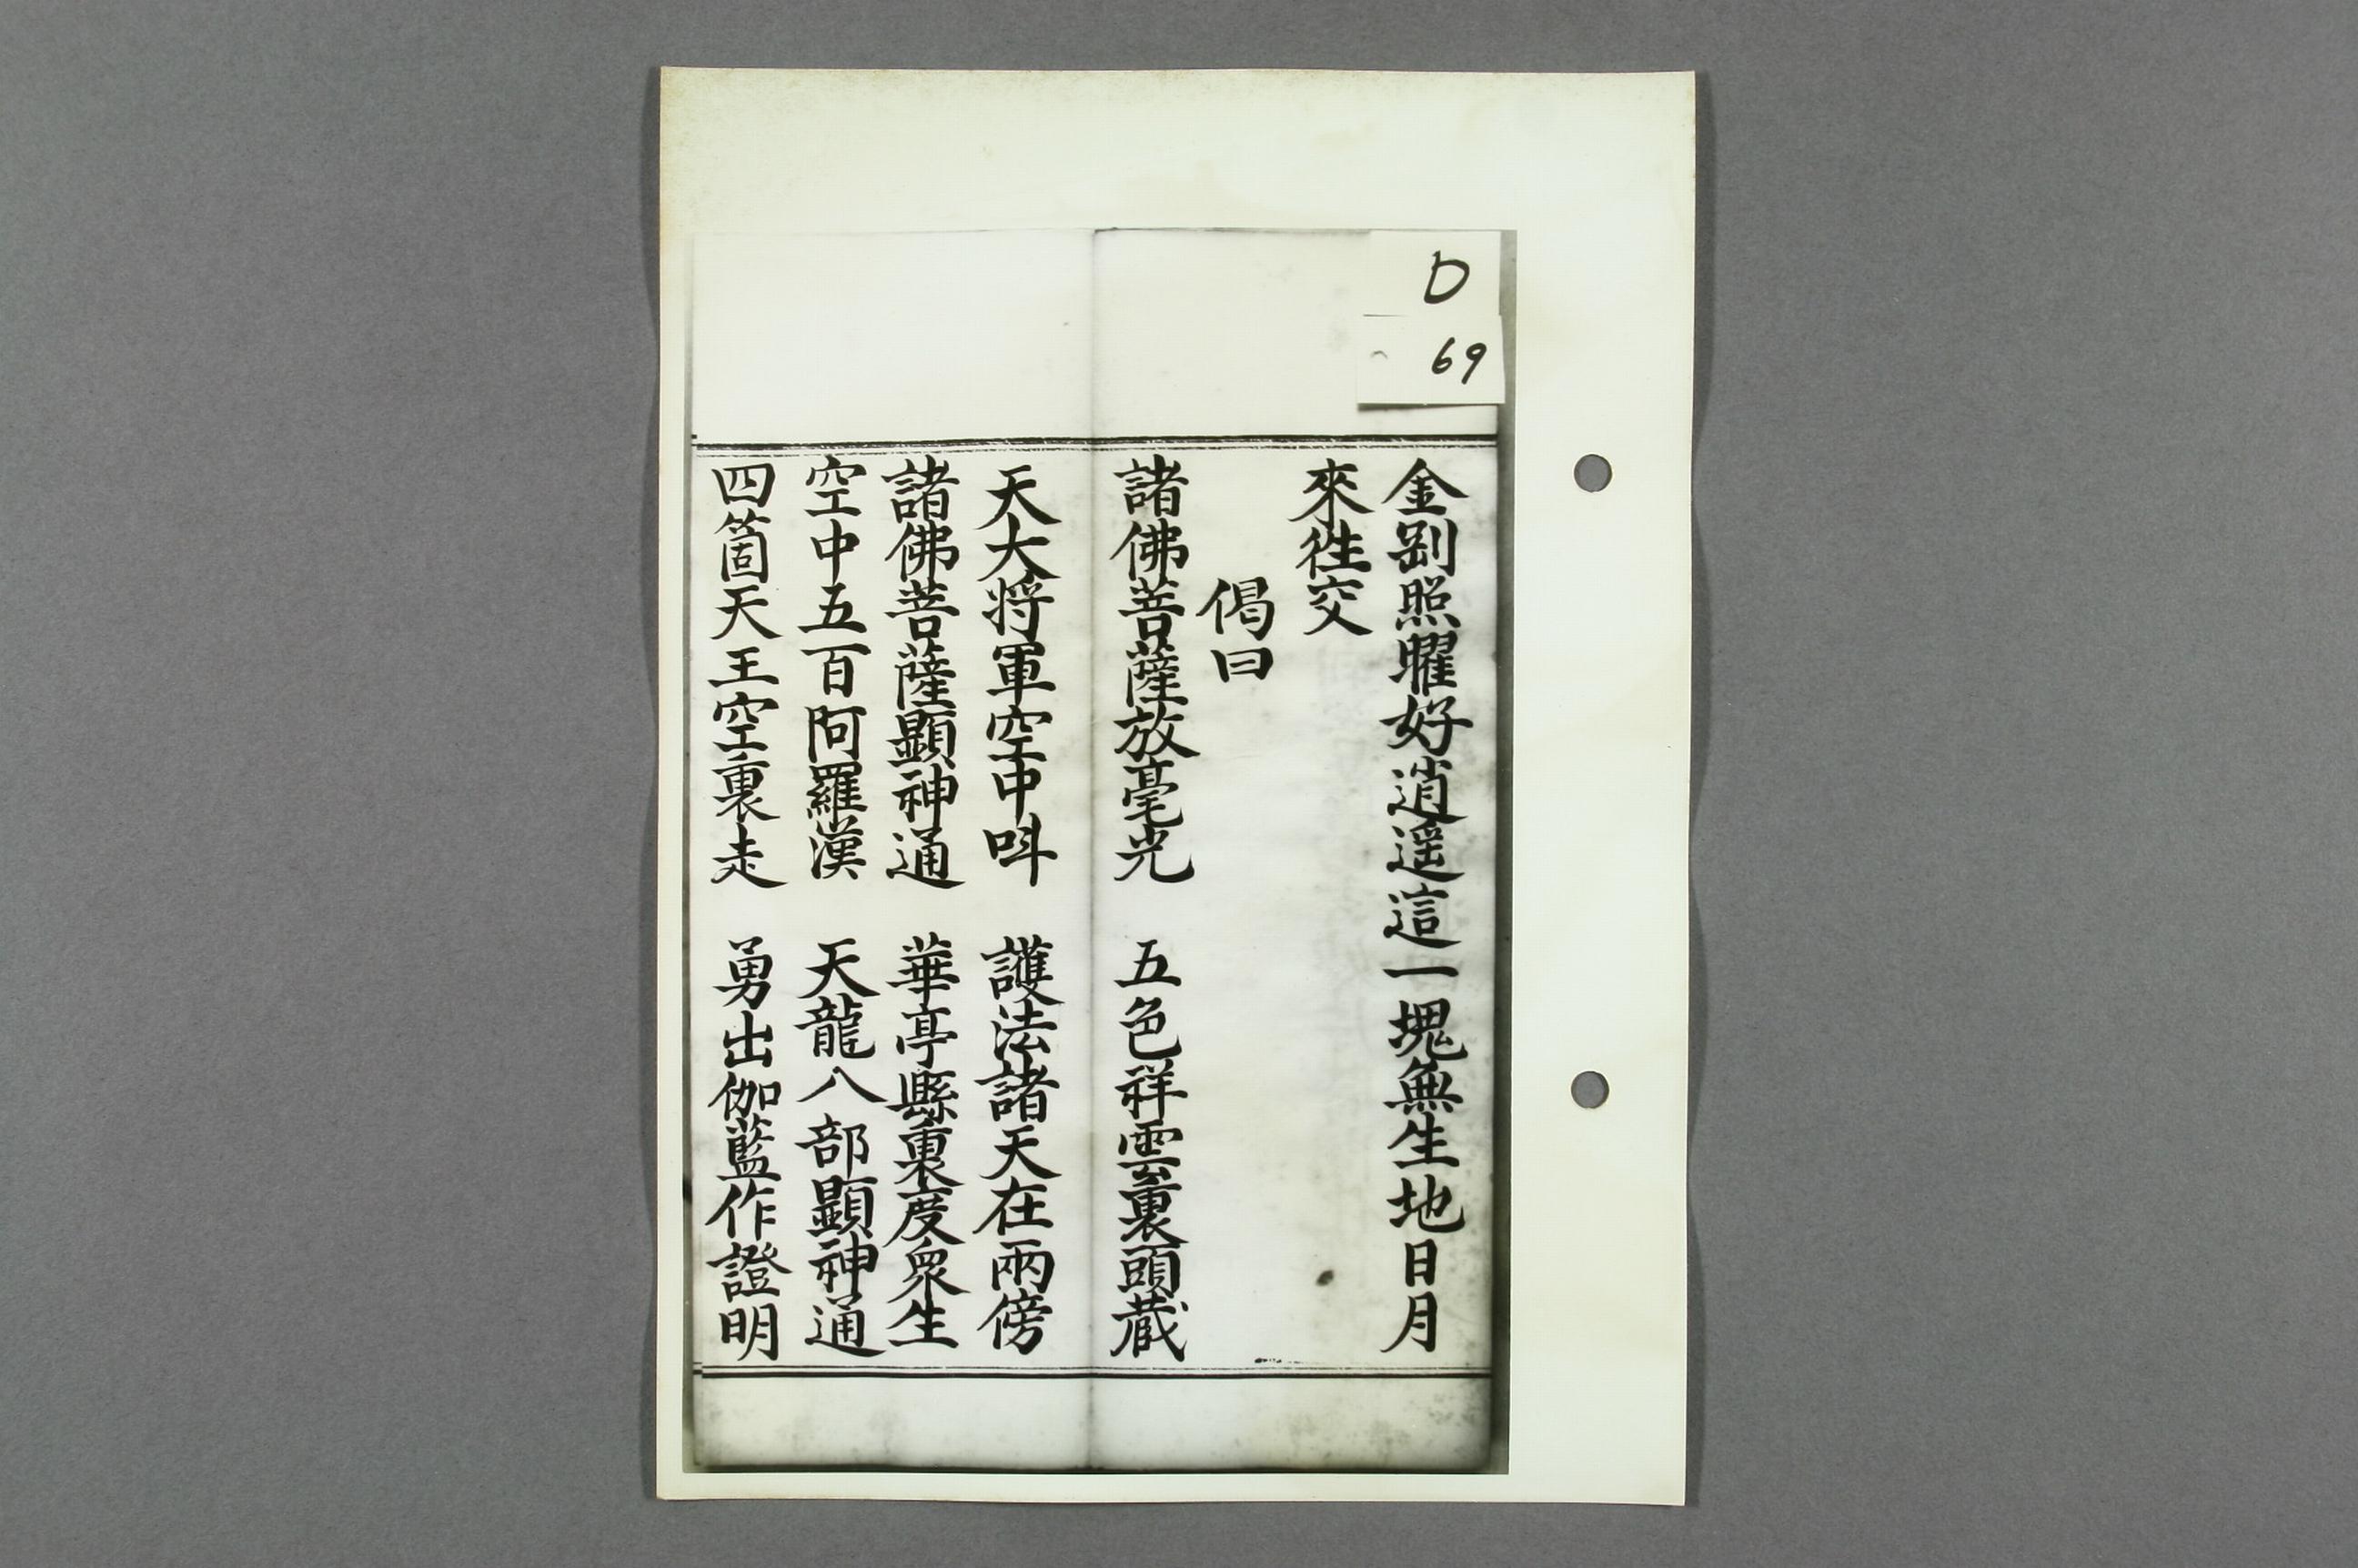 D
69
金剛照曜好逍遥這一塊無生地日月
來徃交
偈曰
諸佛菩薩放毫光 五色祥雲裏頭藏
天大将軍空中呌 護法諸天在兩傍
諸佛菩薩顯神通 華亭縣裏度衆生
空中五百阿羅漢 天龍八部顯神通
四箇天王空裏走 勇出伽藍作證明